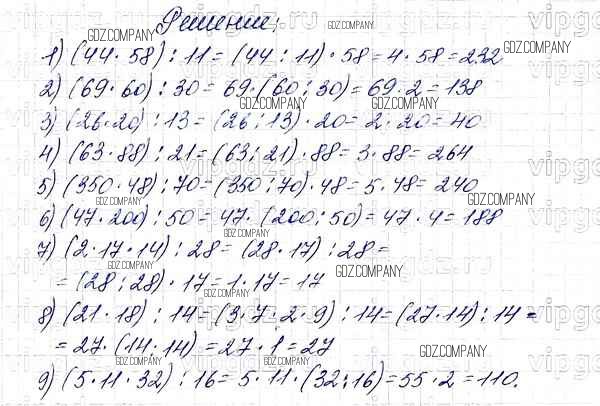 Решение:
1) (44 · 58) : 11 = (44 : 11) · 58 = 4 · 58 = 232
2) (69 · 60) : 30 = 69 · (60 : 30) = 69 · 2 = 138
3) (26 · 20) : 13 = (26 : 13) · 20 = 2 · 20 = 40
4) (63 · 88) : 21 = (63 : 21) · 88 = 3 · 88 = 264
5) (350 · 48) : 70 = (350 : 70) · 48 = 5 · 48 = 240
6) (47 · 200) : 50 = 47 · (200 : 50) = 47 · 4 = 188
7) (2 · 17 · 14) : 28 = (28 · 17) : 28 =
= (28 : 28) · 17 = 1 · 17 = 17
8) (21 · 18) : 14 = (3 · 7 · 2 · 9) : 14 = (27 · 14) : 14 =
= 27 · (14 · 14) = 27 · 1 = 27
9) (5 · 11 · 32) : 16 = 5 · 11 · (32 : 16) = 55 · 2 = 110.
GDZ.COMPANY
vipgdz.ru